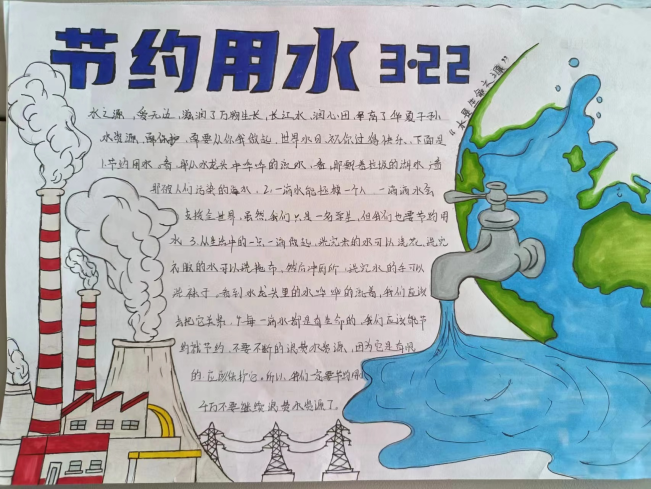 节约用水 3·22
"水是生命之源"
水之源,爱无边,滋润了万物生长,长江水,润心田,养育了华夏子孙
水资源,需保护,需要从你我做起,世界水日,祝你过得快乐,下面是
1.节约用水,看,那从水龙头中哗哗的流水,看,那飘着垃圾的湖水,看
那被人们污染的海水,2.一滴水能拯救一个人,一滴滴水会
去拯全世界,虽然我们只是一名学生,但我们也要节约用
水 3.从生活中的一点一滴做起,洗完米的水可以洗菜,洗完
衣服的水可以洗拖布,然后冲厕所,洗完水的手可以
看到水龙头里的水哗哗的流着,我们应该
去把它关紧,4.每一滴水都是有生命的,我们应该能节
约就节约,不要不断的浪费水资源,因为它是有限
的,应该保护它,所以,我们一定要节约用水
千万不要继续浪费水资源了。